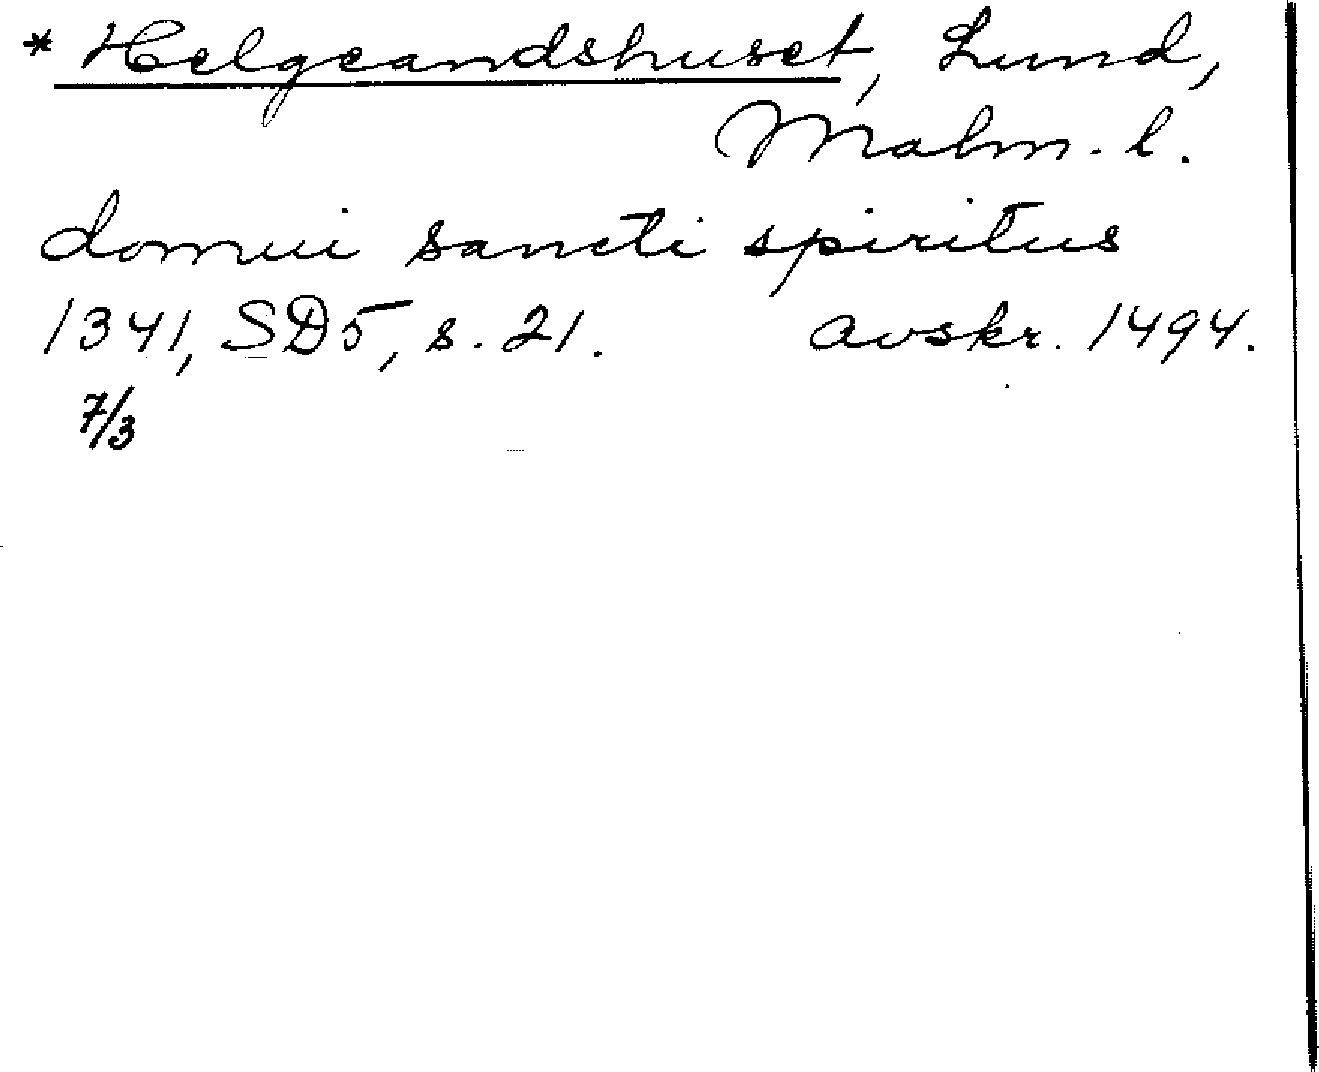 * Helgeandshuset, Lund,
Malm. l.
domui sancti spiritus
1341, SD5, s. 21. avskr. 1494.
7/3